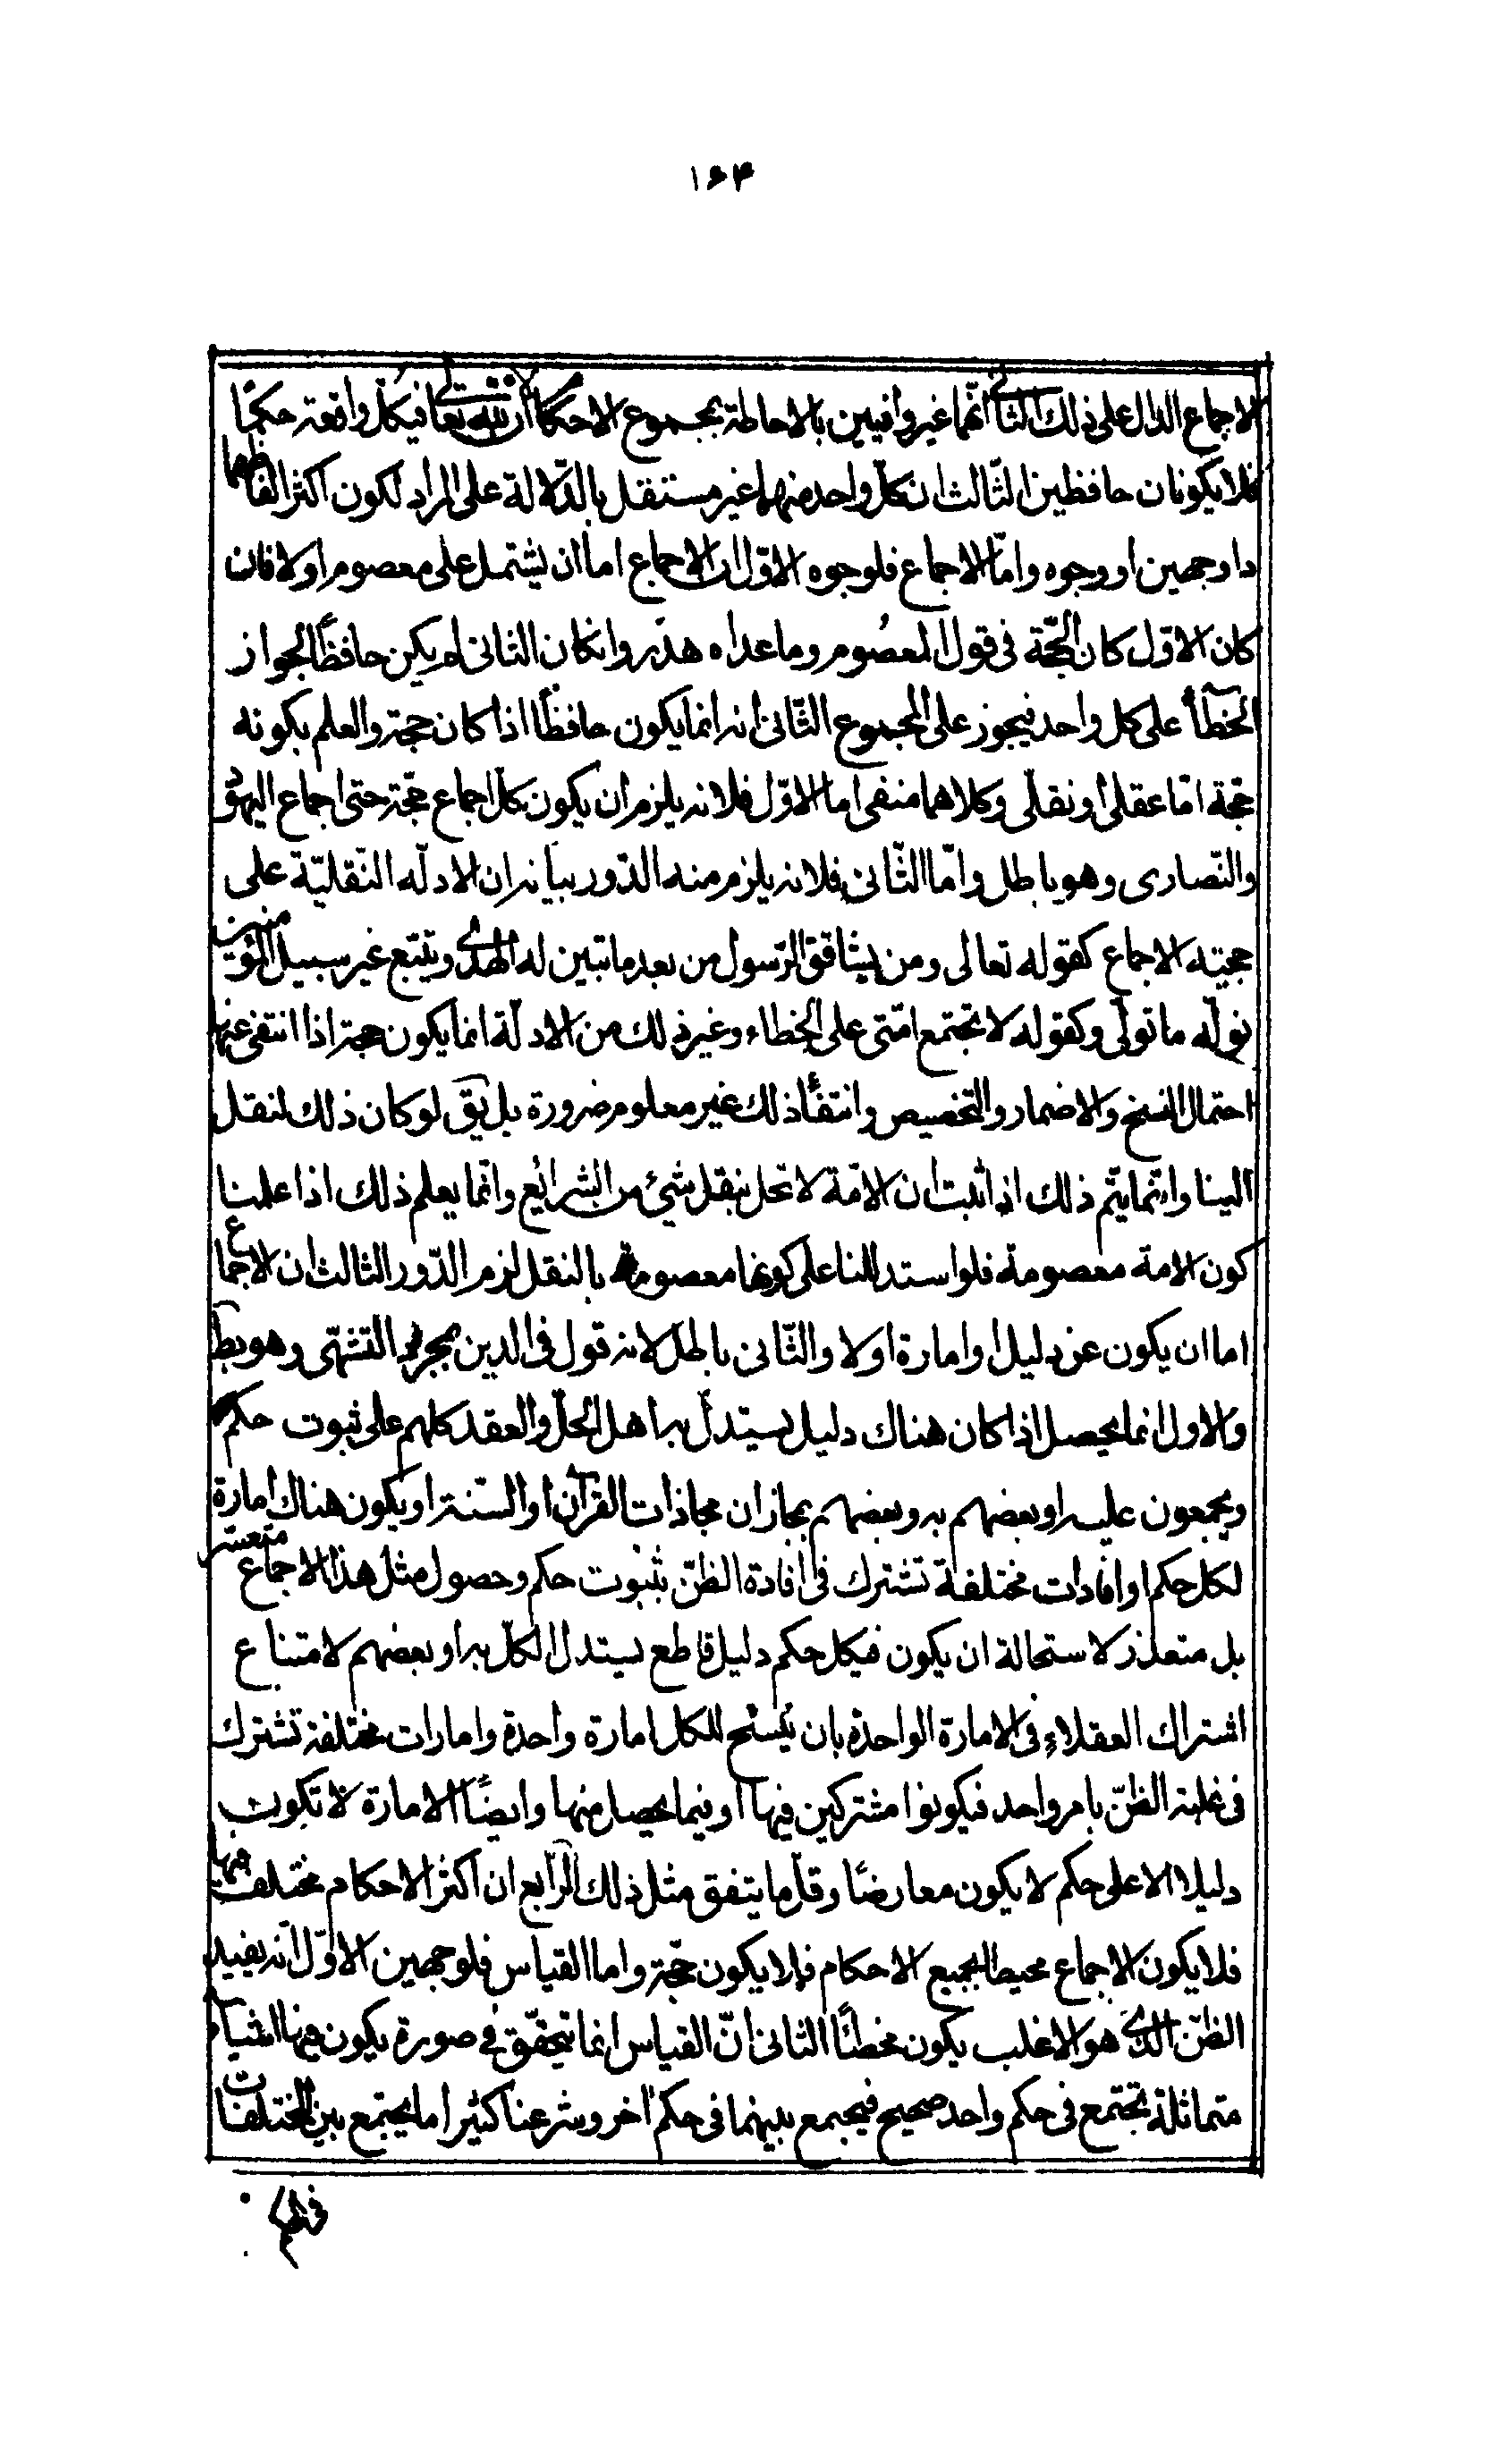 ۱۶۴
الاجماع الدال على ذلك الثانى انهما غير وافيين بالاحاطة بمجموع الاحكام لان لله تعالى فيكل واقعة حكمًا
فلا يكونان حافظين الثالث ان كل واحد منهما غير مستقل بالدّلالة على المراد لكون اكثر الفاظهما
ذا وجهين او وجوه وامّا الاجماع فلوجوه الاوّل ان الاجماع اما ان يشتمل على معصوم او لا فان
كان الاوّل كان الحجّة فى قول المعصوم وما عداه هدر وانكان الثانى لم يكن حافظًا لجواز
الخطأ على كل واحد فيجوز على المجموع الثّانى انه انما يكون حافظًا اذا كان حجة والعلم بكونه
حجة امّا عقلى او نقلى وكلاهما منفى اما الاوّل فلانه يلزم ان يكون كل اجماع حجّة حتى اجماع اليهود
والنّصارى وهو باطل وامّا الثّانى فلانه يلزم منه الدّور بيانه ان الادلّه النّقليّة على
حجيته الاجماع كقوله تعالى ومن يشاقق الرّسول من بعد ما تبين له الهدى ويتبع غير سبيل المؤمنين
نولّه ما تولّى وكقوله لا تجتمع امّتى على الخطاء وغير ذلك من الادلّة انما يكون حجة اذا انتفى عنها
احتمال النسخ والاضمار والتخصيص وانتفأ ذلك غير معلوم ضرورة بل يق لو كان ذلك لنقل
الينا وانّما يتم ذلك اذا ثبت ان الامّة لا تخل بنقل شئ من الشرائع وانّما يعلم ذلك اذا علمنا
كون الامة معصومة فلو استدللنا على كونها معصومة بالنقل لزم الدّور الثالث ان الاجماع
اما ان يكون عن دليل او امارة او لا والثّانى باطل لانه قول فى الدين بمجرد التشهّى وهو بط
والاول انما يحصل اذا كان هناك دليل يستدلّ به اهل الحلّ والعقد كلهم على ثبوت حكم
ويجمعون عليه او بعضهم به وبعضهم بمجازان مجاذات القرآن او السّنة او يكون هناك امارة
لكل حكم او افادات مختلفة تشترك فى افادة الظنّ بثبوت حكم وحصول مثل هذا الاجماع متعسر
بل متعذر لاستحالة ان يكون فيكل حكم دليل قاطع يستدل الكلّ به او بعضهم لامتناع
اشتراك العقلاء فى الامارة الواحدة بان يسنح للكل امارة واحدة وامارات مختلفة تشترك
فى غلبة الظنّ بامر واحد فيكونوا مشتركين فيها او فيما يحصل منها وايضًا الامارة لا تكون
دليلا الا على حكم لا يكون معارضًا وقلّ ما يتفق مثل ذلك الرّابع ان اكثر الاحكام مختلف فيها
فلا يكون الاجماع محيطا بجميع الاحكام فلا يكون حجّة واما القياس فلوجهين الاوّل انّه يفيد
الظنّ الذى هو الاغلب يكون مخطئًا الثانى انّ القياس انما يتحقّق فى صورة يكون فيها اشياء
متماثلة تجتمع فى حكم واحد صحيح فيجمع بينهما فى حكم اخر وشرعنا كثيرا ما يجتمع بين المختلفات